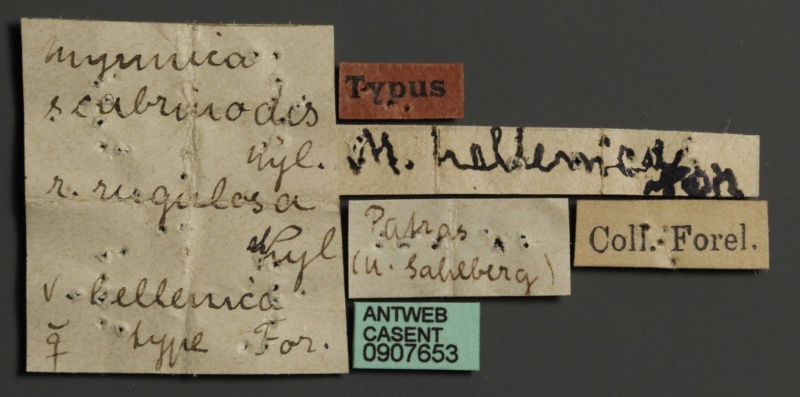 Myrmica
scabrinodis
Nyl.
r. rugulosa
Nyl
v. hellenica
☿ type For.
Typus
M. hellenica
For
Patras
(U. Sahlberg)
Coll. Forel.
ANTWEB
CASENT
0907653